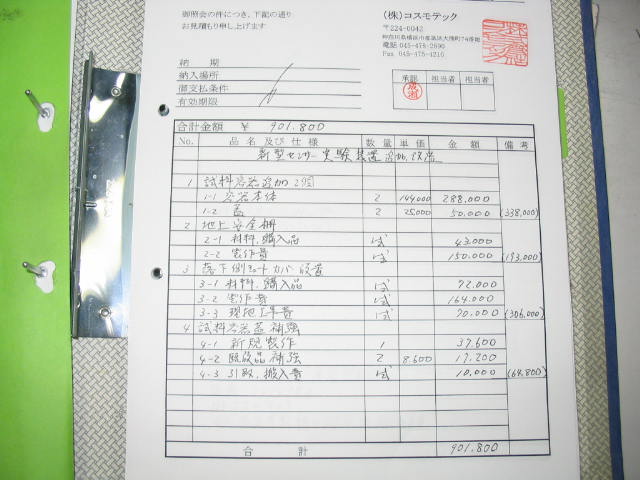 御照会の件につき、下記の通り
お見積もり申し上げます
(株)コスモテック
〒224-0042
電話 045-475-2690
Fax 045-475-4210
納 期
納入場所
御支払条件
有効期限
承認 担当者 担当者
合計金額 ¥ 901.800
No. 品名及び仕様 数量 単価 金額 備考
新型センサー実験装置追加、改造
1 試料容器追加 2個
1-1 容器本体 2 144,000 288.000
1-2 蓋 2 25,000 50.000 (338,000)
2 地上安全柵
2-1 材料、購入品 1式 43.000
2-2 製作費 1式 150.000 (193,000)
3 落下側シュートカバー設置
3-1 材料、購入品 1式 72.000
3-2 製作費 1式 164.000
3-3 現地工事費 1式 70.000 (306,000)
4 試料容器蓋補強
4-1 新規製作 1 37,600
4-2 既設品補強 2 8.600 17,200
4-3 引取、搬入費 1式 10,000 (64,800)
合計 901.800